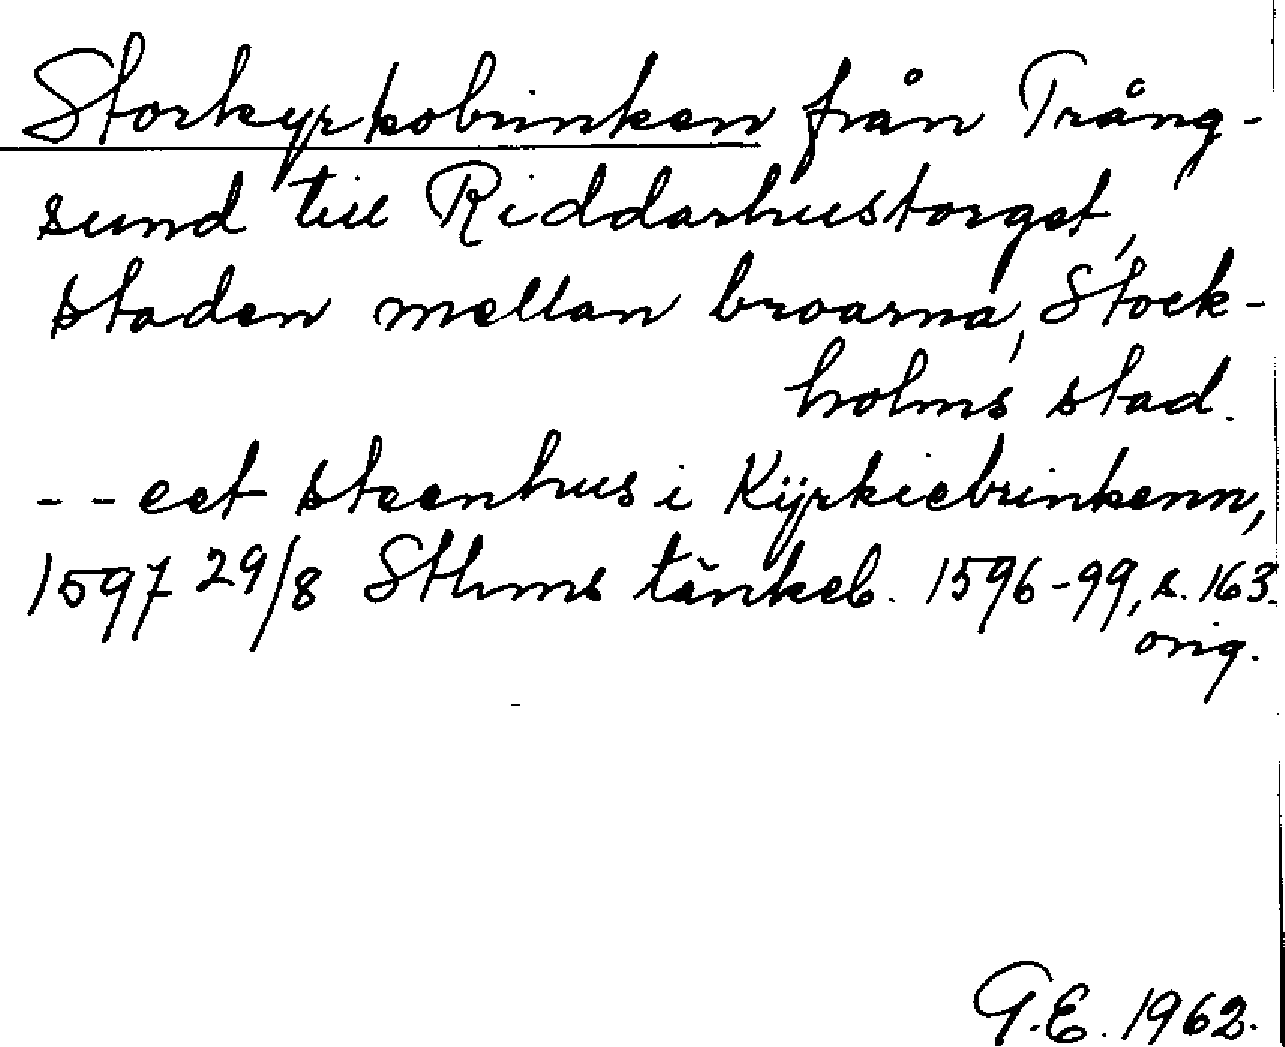 Storkyrkobrinken från Trång-
sund till Riddarhustorget,
staden mellan broarna, Stock-
holms stad.
- - eet steenhus i Kÿrkiebrinkenn,
1597 29/8 Sthms tänkeb. 1596-99, s. 163.
orig.
G.E. 1962.